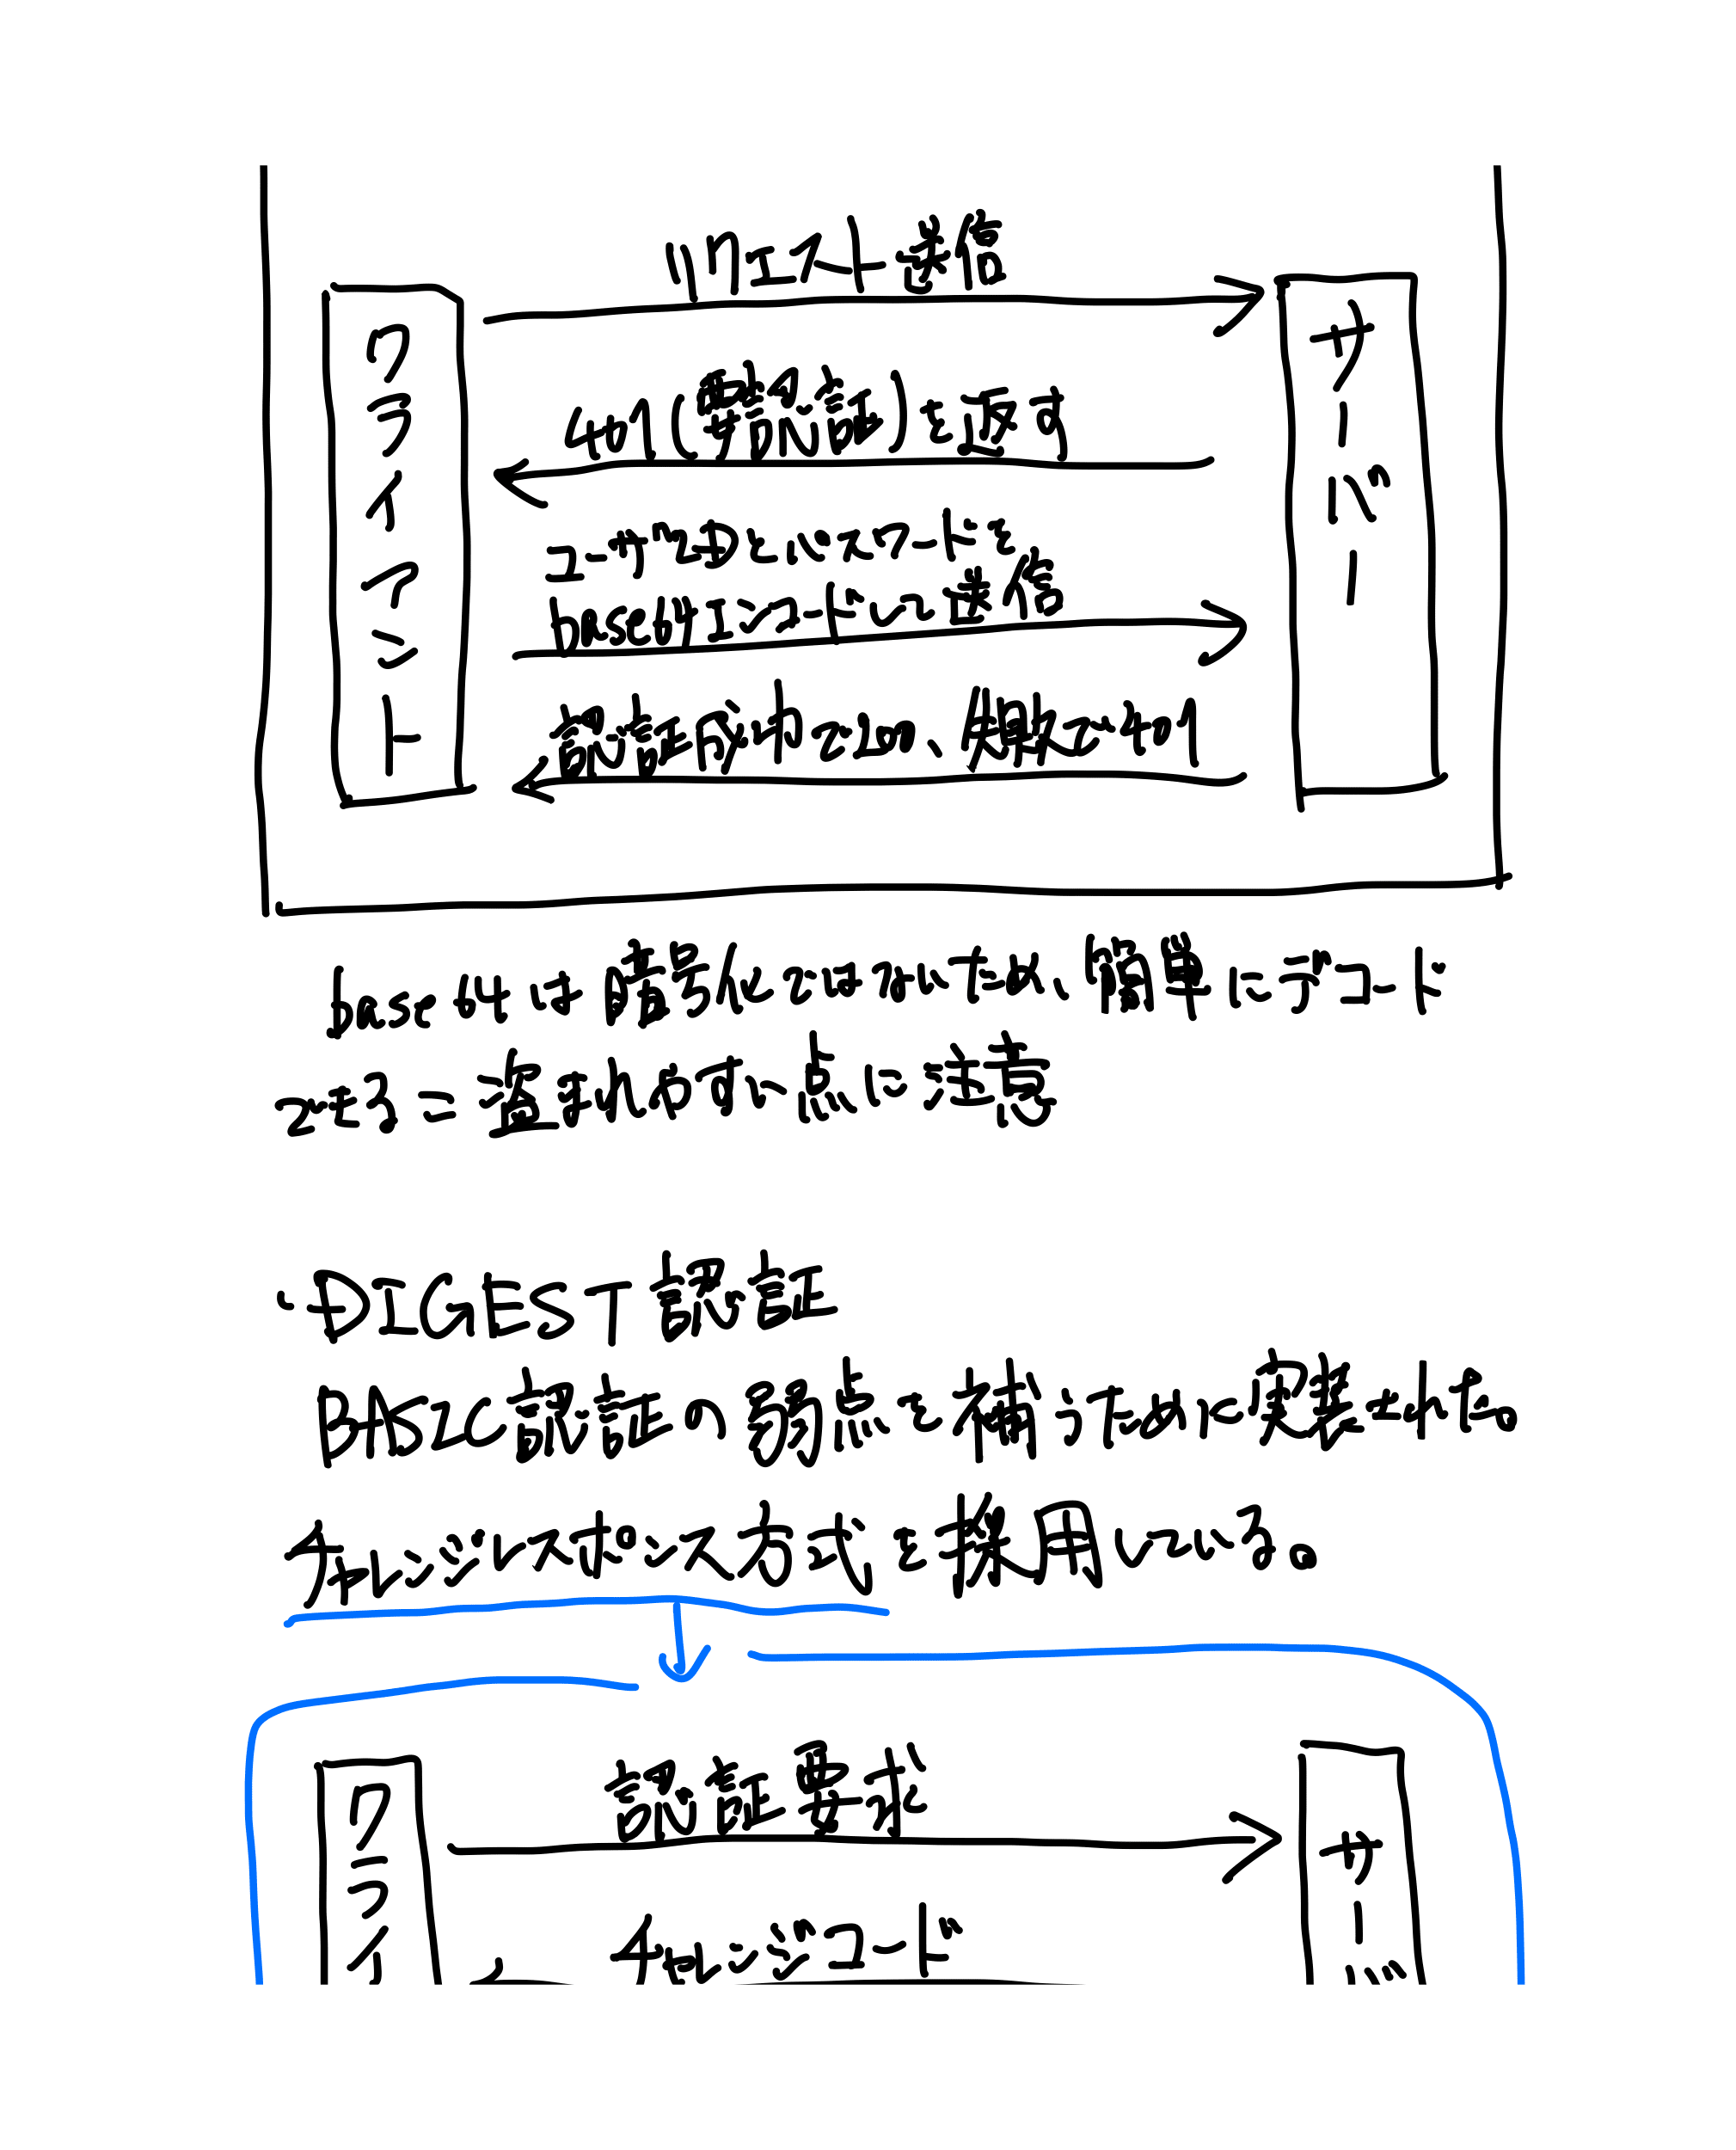 リクエスト送信
クライアント
サーバー
401(要認証)を返す
ユーザIDとパスワードを
base64エンコードして送信
認証成功で200、失敗で401
base64は暗号化ではないため、簡単にデコード
できる=盗まれやすい点に注意
・DIGEST認証
BASIC認証の弱点を補うために実装された。
チャレンジレスポンス方式を採用している。
認証要求
クライ
サーバ
チャレンジコード